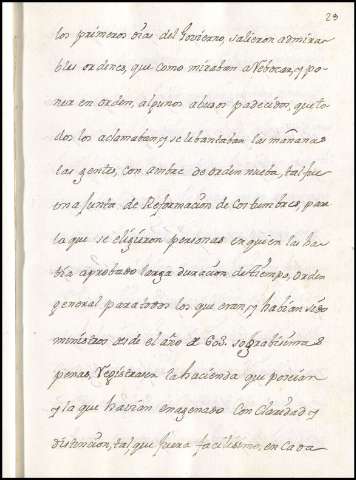 23
los primeros días del Govierno, salieron admira=
bles ordenes, que como miraban a Rebocar, y po=
ner en orden, algunos abusos padecidos, que to=
dos los aclamaban, y se lebantaban las mañanas
las gentes, con ambre de orden nueba, tal fue
una Junta de Reformación de Costumbres, para
la que se eligieron personas en quien las ha=
bía aprobado larga duración de tiempo, orden
general para todos los que eran, y habían sido
ministros desde el año de 603. so grabísimas
penas, Registrasen la hacienda que poseían
y la que havían enagenado con Claridad y
distinción, tal, que fuera facilísimo, en Cada